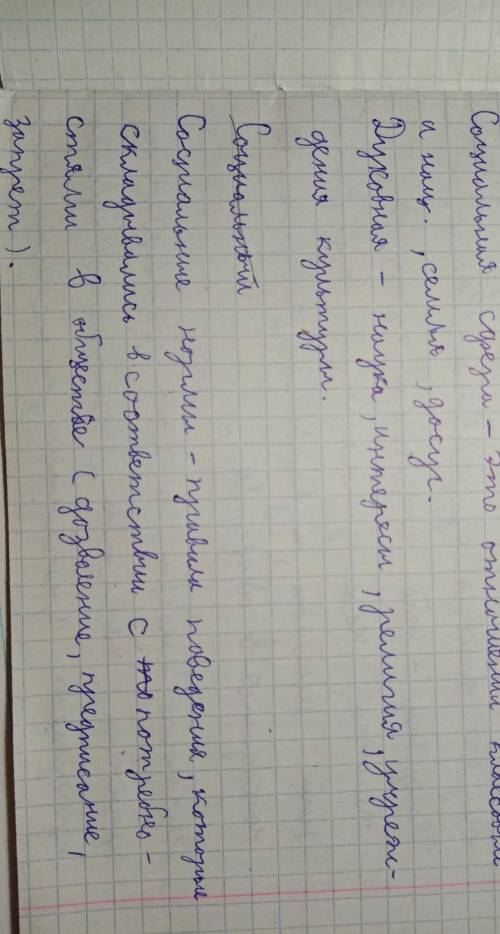 Социальная сфера - это отношении классовые
и нац., семья, досуг.
Духовная - наука, интересы, религия, учреж-
дения культуры.
Социальный
Социальные нормы - правила поведения, которые
складывались в соответствии с потребно-
стями в обществе (дозволение, предписание,
запрет).